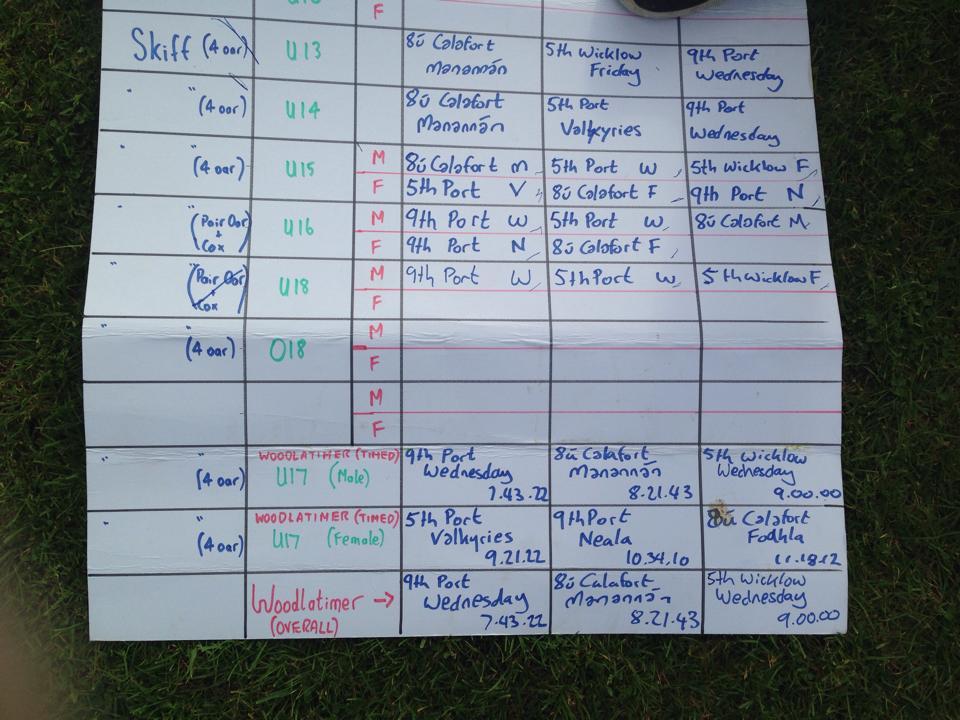 F
Skiff (4 oar) U13 8ú Calafort Manannán 5th Wicklow Friday 9th Port Wednesday
" " (4 oar) U14 8ú Calafort Manannán 5th Port Valkyries 9th Port Wednesday
" " (4 oar) U15 M 8ú Calafort M 5th Port W 5th Wicklow F
F 5th Port V 8ú Calafort F 9th Port N
" (Pair Oar + Cox) U16 M 9th Port W 5th Port W 8ú Calafort M
F 9th Port N 8ú Calafort F
" (Pair Oar + Cox) U18 M 9th Port W 5th Port W 5th Wicklow F
F
" " (4 oar) O18 M
F
M
F
" " (4 oar) WOODLATIMER (TIMED) U17 (Male) 9th Port Wednesday 7.43.22 8ú Calafort Manannán 8.21.43 5th Wicklow Wednesday 9.00.00
" " (4 oar) WOODLATIMER (TIMED) U17 (Female) 5th Port Valkyries 9.21.22 9th Port Neala 10.34.10 8ú Calafort Fodhla 11.18.12
Woodlatimer → (OVERALL) 9th Port Wednesday 7.43.22 8ú Calafort Manannán 8.21.43 5th Wicklow Wednesday 9.00.00